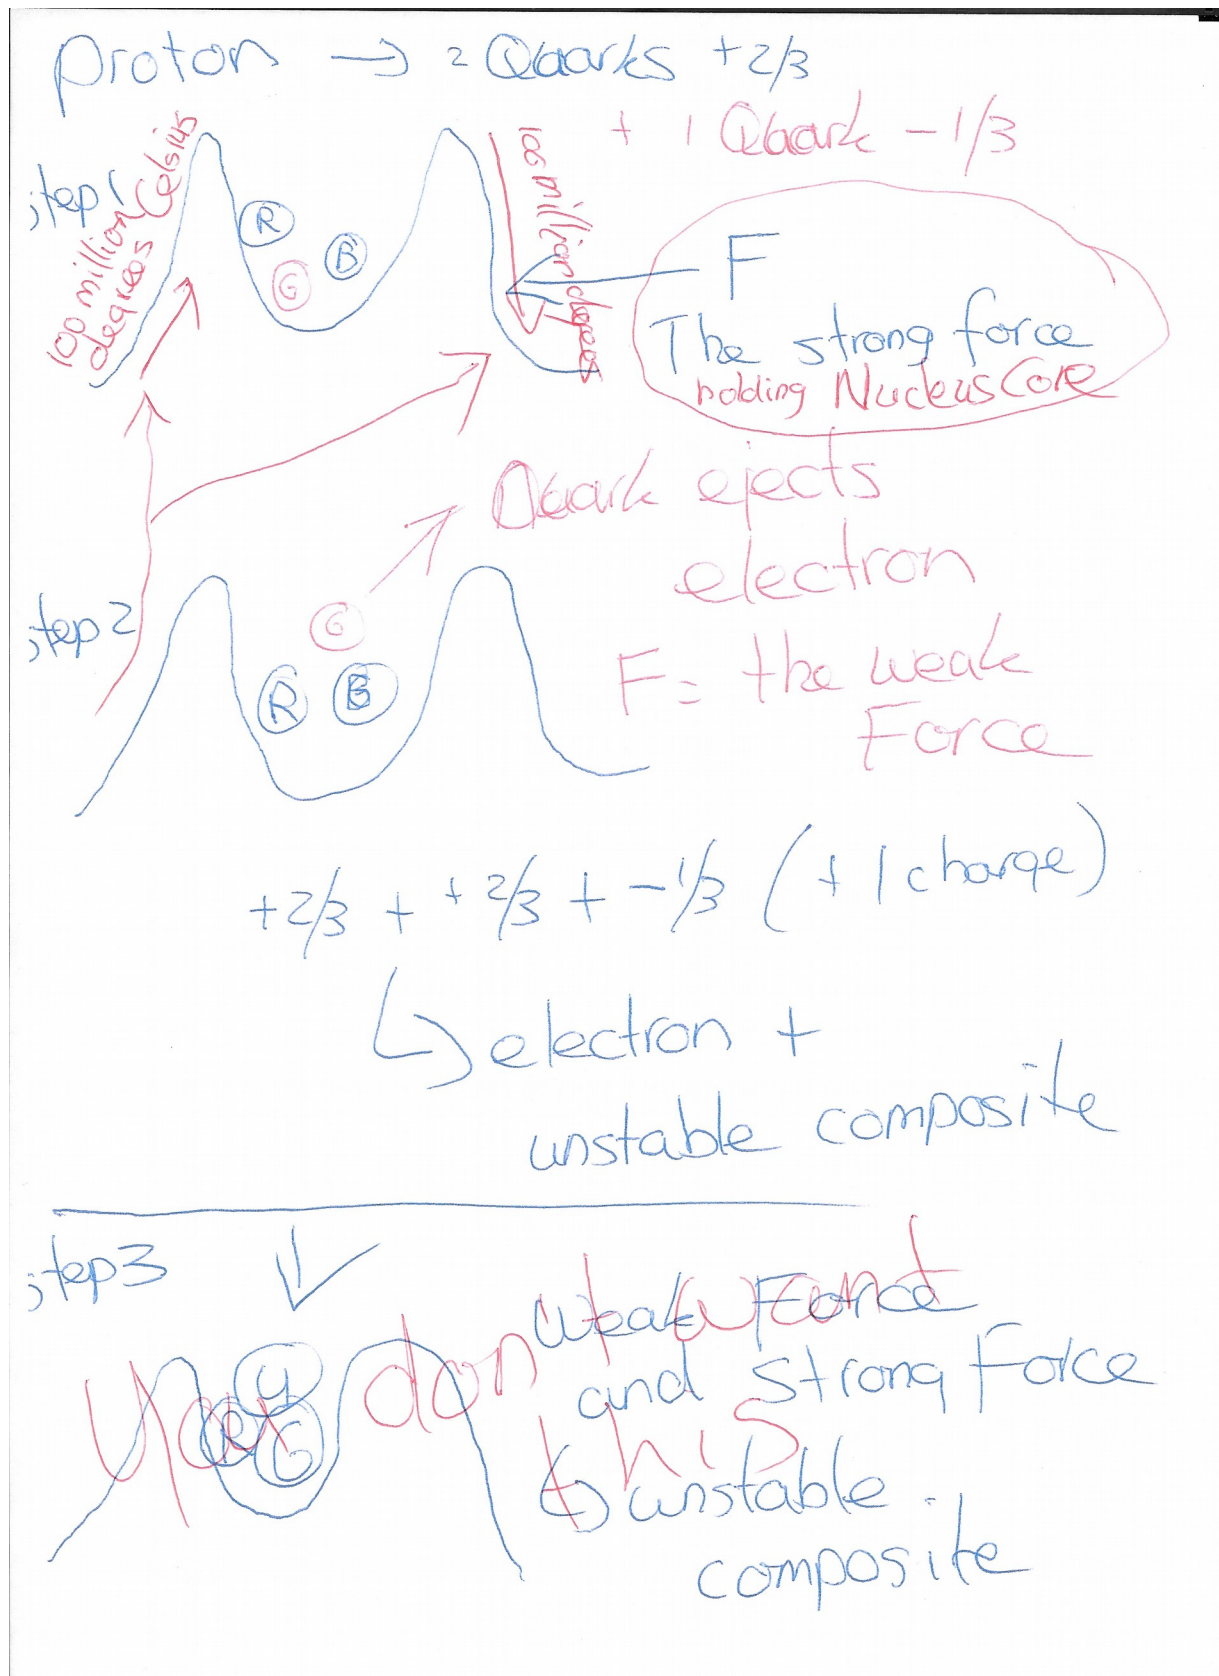 Proton → 2 Quarks +2/3
+ 1 Quark -1/3
step 1
100 million
degrees Celsius
R
B
G
100 million degrees
F
The strong force
holding Nucleus Core
Quark ejects
electron
step 2
G
R B
F = the weak
Force
+2/3 + +2/3 + -1/3 (+1 charge)
↳ electron +
unstable composite
step 3
Weak Force
and strong Force
↳ unstable
composite
R
G
You don't want
this